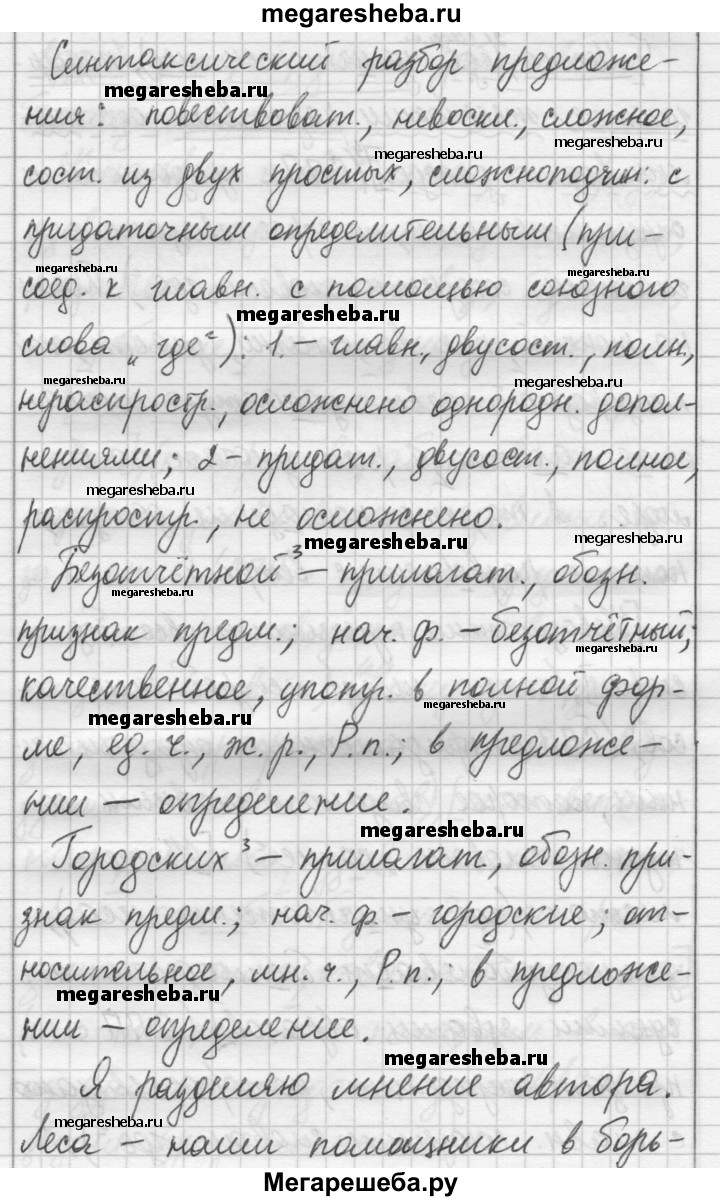 megaresheba.ru
Синтаксический разбор предложе-
megaresheba.ru
ния: повествоват., невоскл., сложное,
megaresheba.ru
megaresheba.ru
сост. из двух простых, сложноподчин: с
придаточным определительным (при-
megaresheba.ru
megaresheba.ru
соед. к главн. с помощью союзного
megaresheba.ru
слова „где"): 1. – главн, двусост., полн,
megaresheba.ru
megaresheba.ru
нераспростр., осложнено однородн. допол-
нениями; 2 – придат., двусост., полное,
megaresheba.ru
распростр., не осложнено.
megaresheba.ru
megaresheba.ru
Безотчётной³ – прилагат., обозн.
megaresheba.ru
признак предм.; нач. ф. – безотчётный;
megaresheba.ru
качественное, употр. в полной фор-
megaresheba.ru
megaresheba.ru
ме, ед. ч., ж. р., Р. п.; в предложе-
нии – определение.
megaresheba.ru
Городских³ – прилагат., обозн. при-
знак предм.; нач. ф. – городские; от-
носительное, мн. ч., Р. п.; в предложе-
megaresheba.ru
нии – определение.
megaresheba.ru
Я разделяю мнение автора.
megaresheba.ru
Леса – наши помощники в борь-
Мегарешеба.ру